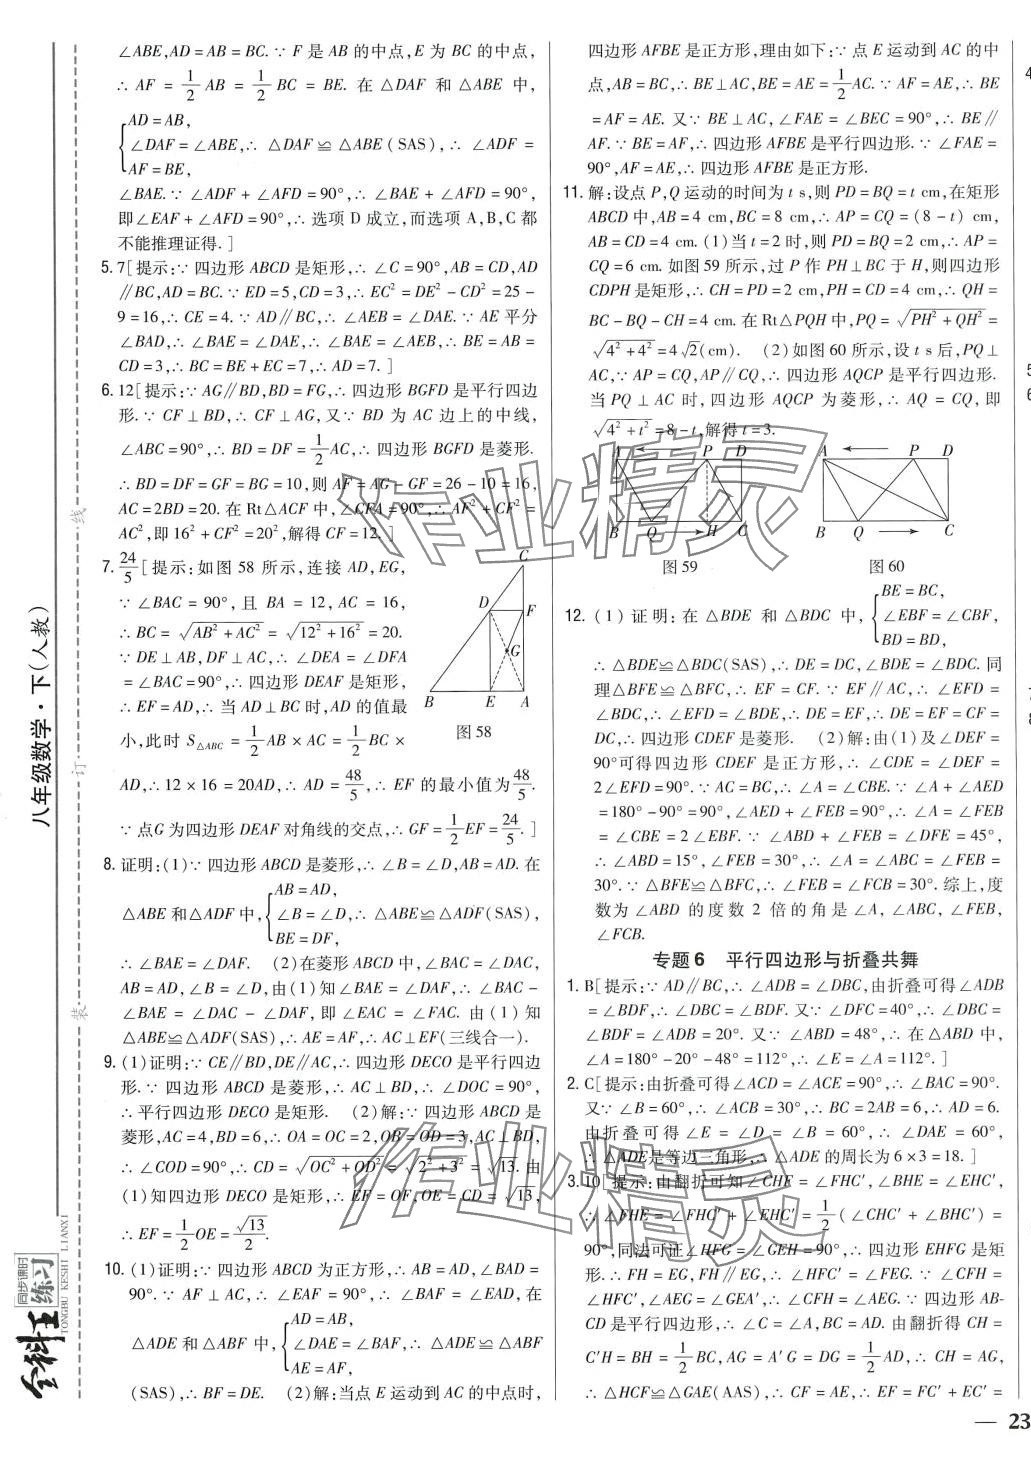 ∠ABE,AD=AB=BC.∵ F 是 AB 的中点,E 为 BC 的中点,
∴ AF = 1/2 AB = 1/2 BC = BE. 在 △DAF 和 △ABE 中,
{AD=AB,
∠DAF=∠ABE,∴ △DAF≌△ABE(SAS),∴ ∠ADF=
AF=BE,
∠BAE.∵ ∠ADF+∠AFD=90°,∴ ∠BAE+∠AFD=90°,
即∠EAF+∠AFD=90°,∴ 选项 D 成立,而选项 A,B,C 都
不能推理证得.]
5.7[提示:∵ 四边形 ABCD 是矩形,∴ ∠C=90°,AB=CD,AD
∥BC,AD=BC.∵ ED=5,CD=3,∴ EC²=DE²-CD²=25-
9=16,∴ CE=4.∵ AD∥BC,∴ ∠AEB=∠DAE.∵ AE 平分
∠BAD,∴ ∠BAE=∠DAE,∴ ∠BAE=∠AEB,∴ BE=AB=
CD=3,∴ BC=BE+EC=7,∴ AD=7.]
6.12[提示:∵ AG∥BD,BD=FG,∴ 四边形 BGFD 是平行四边
形.∵ CF⊥BD,∴ CF⊥AG,又∵ BD 为 AC 边上的中线,
∠ABC=90°,∴ BD=DF=1/2AC,∴ 四边形 BGFD 是菱形.
∴ BD=DF=GF=BG=10,则 AF=AG-GF=26-10=16,
AC=2BD=20. 在 Rt△ACF 中,∠CFA=90°,∴ AF²+CF²=
AC²,即 16²+CF²=20²,解得 CF=12.]
7. 24/5[提示:如图 58 所示,连接 AD,EG,
∵ ∠BAC=90°, 且 BA=12,AC=16,
∴ BC=√(AB²+AC²)=√(12²+16²)=20.
∵ DE⊥AB,DF⊥AC,∴ ∠DEA=∠DFA
=∠BAC=90°,∴ 四边形 DEAF 是矩形,
∴ EF=AD,∴ 当 AD⊥BC 时,AD 的值最
小,此时 S△ABC=1/2AB×AC=1/2BC×
C
D
F
G
B
E
A
图 58
AD,∴ 12×16=20AD,∴ AD=48/5,∴ EF 的最小值为48/5.
∵ 点G为四边形 DEAF 对角线的交点,∴ GF=1/2EF=24/5.]
8. 证明:(1)∵ 四边形 ABCD 是菱形,∴ ∠B=∠D,AB=AD. 在
△ABE 和△ADF 中,{AB=AD,
∠B=∠D,∴ △ABE≌△ADF(SAS),
BE=DF,
∴ ∠BAE=∠DAF. (2)在菱形 ABCD 中,∠BAC=∠DAC,
AB=AD,∠B=∠D,由(1)知∠BAE=∠DAF,∴ ∠BAC-
∠BAE=∠DAC-∠DAF,即∠EAC=∠FAC. 由(1)知
△ABE≌△ADF(SAS),∴ AE=AF,∴ AC⊥EF(三线合一).
9. (1)证明:∵ CE∥BD,DE∥AC,∴ 四边形 DECO 是平行四边
形.∵ 四边形 ABCD 是菱形,∴ AC⊥BD,∴ ∠DOC=90°,
∴ 平行四边形 DECO 是矩形. (2)解:∵ 四边形 ABCD 是
菱形,AC=4,BD=6,∴ OA=OC=2,OB=OD=3,AC⊥BD,
∴ ∠COD=90°,∴ CD=√(OC²+OD²)=√(2²+3²)=√13. 由
(1)知四边形 DECO 是矩形,∴ EF=OF,OE=CD=√13,
∴ EF=1/2OE=√13/2.
10. (1)证明:∵ 四边形 ABCD 为正方形,∴ AB=AD,∠BAD=
90°.∵ AF⊥AC,∴ ∠EAF=90°,∴ ∠BAF=∠EAD,在
△ADE 和△ABF 中,{AD=AB,
∠DAE=∠BAF,∴ △ADE≌△ABF
AE=AF,
(SAS),∴ BF=DE. (2)解:当点 E 运动到 AC 的中点时,
四边形 AFBE 是正方形,理由如下:∵ 点 E 运动到 AC 的中
点,AB=BC,∴ BE⊥AC,BE=AE=1/2AC.∵ AF=AE,∴ BE
=AF=AE. 又∵ BE⊥AC,∠FAE=∠BEC=90°,∴ BE∥
AF.∵ BE=AF,∴ 四边形 AFBE 是平行四边形.∵ ∠FAE=
90°,AF=AE,∴ 四边形 AFBE 是正方形.
11. 解:设点 P,Q 运动的时间为 t s,则 PD=BQ=t cm,在矩形
ABCD 中,AB=4 cm,BC=8 cm,∴ AP=CQ=(8-t) cm,
AB=CD=4 cm.(1)当 t=2 时,则 PD=BQ=2 cm,∴ AP=
CQ=6 cm. 如图 59 所示,过 P 作 PH⊥BC 于 H,则四边形
CDPH 是矩形,∴ CH=PD=2 cm,PH=CD=4 cm,∴ QH=
BC-BQ-CH=4 cm. 在 Rt△PQH 中,PQ=√(PH²+QH²)=
√(4²+4²)=4√2(cm). (2)如图 60 所示,设 t s 后,PQ⊥
AC,∵ AP=CQ,AP∥CQ,∴ 四边形 AQCP 是平行四边形.
当 PQ⊥AC 时,四边形 AQCP 为菱形,∴ AQ=CQ,即
√(4²+t²)=8-t,解得 t=3.
A P D
B Q H C
图 59
A P D
B Q C
图 60
12. (1) 证明:在 △BDE 和 △BDC 中,{BE=BC,
∠EBF=∠CBF,
BD=BD,
∴ △BDE≌△BDC(SAS),∴ DE=DC,∠BDE=∠BDC. 同
理△BFE≌△BFC,∴ EF=CF.∵ EF∥AC,∴ ∠EFD=
∠BDC,∴ ∠EFD=∠BDE,∴ DE=EF,∴ DE=EF=CF=
DC,∴ 四边形 CDEF 是菱形. (2)解:由(1)及∠DEF=
90°可得四边形 CDEF 是正方形,∴ ∠CDE=∠DEF=
2∠EFD=90°.∵ AC=BC,∴ ∠A=∠CBE.∵ ∠A+∠AED
=180°-90°=90°,∠AED+∠FEB=90°,∴ ∠A=∠FEB
=∠CBE=2∠EBF.∵ ∠ABD+∠FEB=∠DFE=45°,
∴ ∠ABD=15°,∠FEB=30°,∴ ∠A=∠ABC=∠FEB=
30°.∵ △BFE≌△BFC,∴ ∠FEB=∠FCB=30°. 综上,度
数为∠ABD 的度数 2 倍的角是∠A,∠ABC,∠FEB,
∠FCB.
专题 6 平行四边形与折叠共舞
1. B[提示:∵ AD∥BC,∴ ∠ADB=∠DBC,由折叠可得∠ADB
=∠BDF,∴ ∠DBC=∠BDF. 又∵ ∠DFC=40°,∴ ∠DBC=
∠BDF=∠ADB=20°. 又∵ ∠ABD=48°,∴ 在△ABD 中,
∠A=180°-20°-48°=112°,∴ ∠E=∠A=112°.]
2. C[提示:由折叠可得∠ACD=∠ACE=90°,∴ ∠BAC=90°.
又∵ ∠B=60°,∴ ∠ACB=30°,∴ BC=2AB=6,∴ AD=6.
由折叠可得∠E=∠D=∠B=60°,∴ ∠DAE=60°,
∴ △ADE是等边三角形,∴ △ADE 的周长为 6×3=18.]
3. 10[提示:由翻折可知∠CHF=∠FHC′,∠BHE=∠EHC′,
∴ ∠FHE=∠FHC′+∠EHC′=1/2(∠CHC′+∠BHC′)=
90°,同法可证∠HFG=∠GEH=90°,∴ 四边形 EHFG 是矩
形.∴ FH=EG,FH∥EG,∴ ∠HFC′=∠FEG.∵ ∠CFH=
∠HFC′,∠AEG=∠GEA′,∴ ∠CFH=∠AEG.∵ 四边形 AB-
CD 是平行四边形,∴ ∠C=∠A,BC=AD. 由翻折得 CH=
C′H=BH=1/2BC,AG=A′G=DG=1/2AD,∴ CH=AG,
∴ △HCF≌△GAE(AAS),∴ CF=AE,∴ EF=FC′+EC′=
— 23
八年级数学·下(人教)
线
订
装
全科王
同步课时
练习
TONGBU KESHI LIANXI
作业精灵
作业精灵